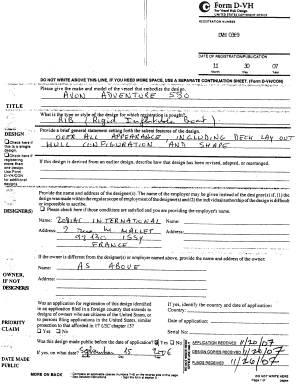 Form D-VH
For Vessel Hull Design
UNITED STATES COPYRIGHT OFFICE
REGISTRATION NUMBER
DATE OF REGISTRATION/PUBLICATION
11 20 07
Month Day Year
DO NOT WRITE ABOVE THIS LINE. IF YOU NEED MORE SPACE, USE A SEPARATE CONTINUATION SHEET (Form D-VH/CON)
TITLE
Please give the make and model of the vessel that embodies the design.
AVON ADVENTURE 530
What is the type or style of the design for which registration is sought?
RIB (Rigid Inflatable Boat)
DESIGN
Provide a brief general statement setting forth the salient features of the design.
OVER ALL APPEARANCE INCLUDING DECK LAY OUT
HULL CONFIGURATION AND SHAPE
Check here if this is a single design
Check here if registering more than one design. Use Form D-VH/CON
If this design is derived from an earlier design, describe how that design has been revised, adapted, or rearranged.
DESIGNERS
Provide the name and address of the designer(s). The name of the employer may be given instead of the designer(s) if, 1) the
design was made within the regular scope of employment of the designer(s) and (2) the individual authorship of the design is difficult
or impossible to ascribe.
Please check here if those conditions are satisfied and you are providing the employer's name.
Name: ZODIAC INTERNATIONAL Name:
Address: 2 MALLET Address:
92130 ISSY
FRANCE
OWNER, IF NOT DESIGNERS
If the owner is different from the designer(s) or employer named above, provide the name and address of the owner.
Name: AS ABOVE
Address:
PRIORITY CLAIM
Was an application for registration of this design identified
in an application filed in a foreign country that extends to
designs of owners who are citizens of the United States, or
to persons filing applications in the United States, similar
protection to that afforded in 17 USC chapter 13?
Yes No
If yes, identify the country and date of application:
Country:
Date of application:
Serial No:
DATE MADE PUBLIC
Was this design made public before the date of application? Yes No
If yes, on what date? September 15 2006
Month Day Year
APPLICATION RECEIVED 11/20/07
DESIGN COPIES RECEIVED 11/20/07
FUNDS RECEIVED 11/20/07
MORE ON BACK
DO NOT WRITE HERE